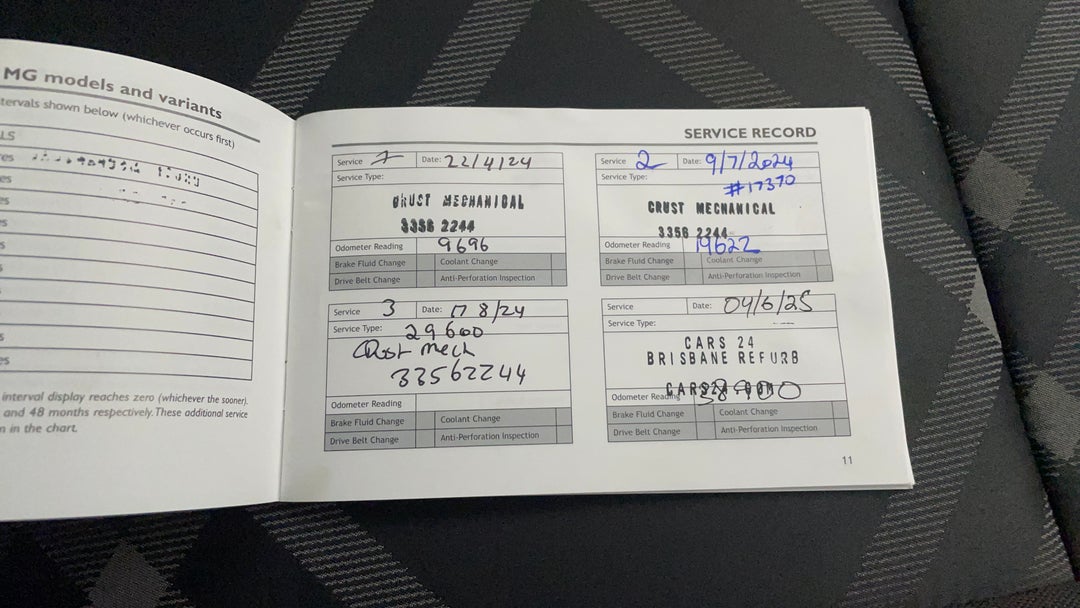 MG models and variants
tervals shown below (whichever occurs first)
LS
res
es
es
s
s
s
es
interval display reaches zero (whichever the sooner).
and 48 months respectively. These additional service
n in the chart.
SERVICE RECORD
Service 1 Date: 22/4/24
Service Type:
CRUST MECHANICAL
3356 2244
Odometer Reading 9696
Brake Fluid Change Coolant Change
Drive Belt Change Anti-Perforation Inspection
Service 2 Date: 9/7/2024
Service Type: #17370
CRUST MECHANICAL
3356 2244
Odometer Reading 19622
Brake Fluid Change Coolant Change
Drive Belt Change Anti-Perforation Inspection
Service 3 Date: 17 8/24
Service Type: 29600
Crust Mech
33562244
Odometer Reading
Brake Fluid Change Coolant Change
Drive Belt Change Anti-Perforation Inspection
Service Date: 04/6/25
Service Type:
CARS 24
BRISBANE REFURB
Odometer Reading
Brake Fluid Change Coolant Change
Drive Belt Change Anti-Perforation Inspection
11